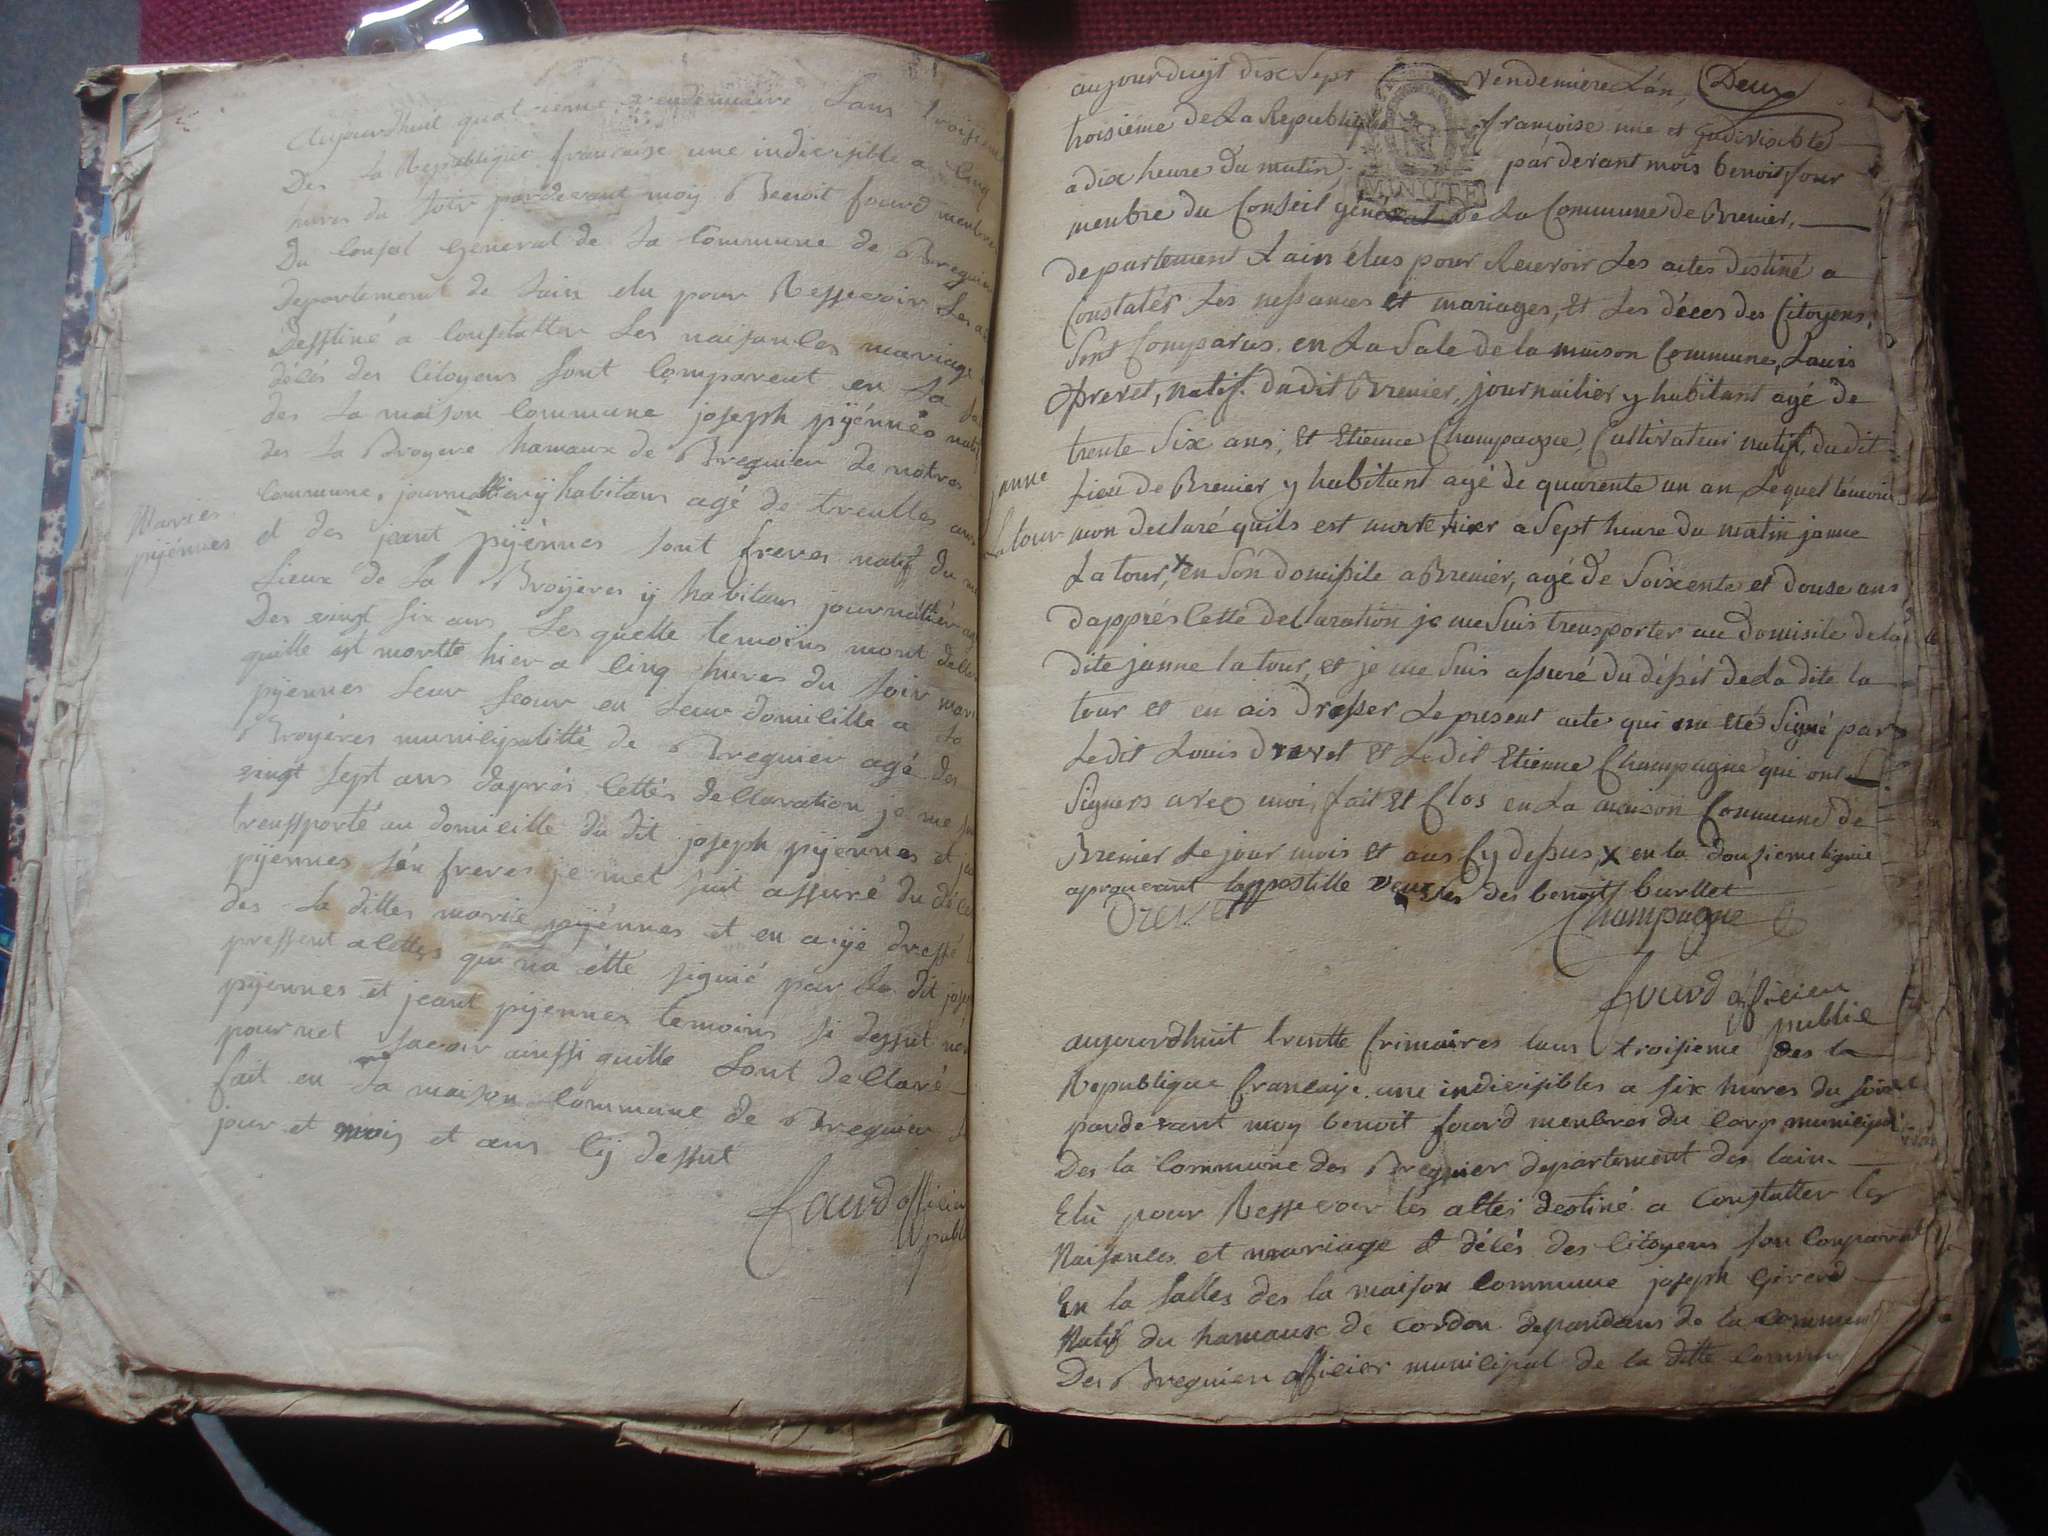 Aujourdhuit quatrieme vendemiaire Lans troisieme
Des La Republique francaise une indivisible a Cinq
hures du Soir pardevant moy Benoit fourd membres
Du Consal General de La Commune de Breguier
departement de Lain elu pour Ressevoir Les
Desstiné a Consstatter Les naisances mariage
délés des Citoyens Sont Comparent en La
des La maison Commune joseph pijénnes natif
des La Broyere hamaux de Breguier de notres
Commune, journallier ÿ habitans agé de trentte ans
Maries
pijénnes
et des jeant pijénnes Sont freres natif du
Lieux de La Broÿeres ÿ habitans journallier
Des vingt Six ans Les quelle temoins mont dellaré
quille est mortte hier a Cinq hures du Soir
pijennes Leur Seour en Leur domicille a La
Broÿéres municipalitté de Breguier agé des
vingt Sept ans daprés Cettes dellaration je me
transsporté au domicille du dit joseph pijennes et
pijennes Sén freres je met Suit assuré du
des La dittes marié pijénnes et en aije dressé
pressent alettes qui na étté signié pár La dit
pijennes et jeant pijennes temoins Si dessut
pour net Savoir ainssi quille Sont dellaré
fait en La maison Commune de Breguier
jour et mois et ans Cij dessut
fourd officier
publ
aujourduijt dix Sept vendemiere Lán, Deux
troisiéme de La Republique francoise une et Indivisible
a dix heure du matin, par devant mois benoit four
MINUTE
menbre du Conseil général de La Commune de Brenier,
departement Lain élus pour Recevoir Les actes destiné a
Constatér Les nessances et mariages, et Les déces des Citoyens,
Sont Comparus. en La Sale de la maison Commune, Louis
Drevet, natif. dudit Brenier, journailier y habitant agé de
trente Six ans, et Etienne Champagne, Cultivateur natif, du dit
janne
Lieu de Brenier y habitant agé de quarente un an, Lequel témoin
La tour
mon declaré quils est morte hier a Sept heure du matin janne
La tour, x en Són domissile a Brenier, agé de Soixente et douse ans
dapprés Cette declaration je me Suis transporter au domisile de la
dite janne la tour, et je me Suis assuré du déssit de La dite la
tour et en ais dresser Le présent acte qui na etés Signé par
Ledit Louis drevet et Ledit Etienne Champagne qui ont
Signers avec moi, fait et Clos en La maison Commune de
Brenier Le jour mois et ans Cy dessus, x en la dousieme lignie
aprouvant lappostille veuves des benoit burllet
Drevet
Champagne
fourd officier
publie
aujourdhuit trentte frimaires lans troisieme des la
Republique francaise une indivisibles a six hures du soire
pardevant moy benoit fourd menbres du Corp municipal
Des la Commune des Breguier departement des lain
Elu pour Ressevoir les alles destiné a Constatter les
Naisances et mariage et délés des Citoyens son Comparant
En la salles des la maison Commune joseph Girerd
Natif du hamaux de Cordon dependans de la Commun
Des Breguier officier municipal de la ditte Commu